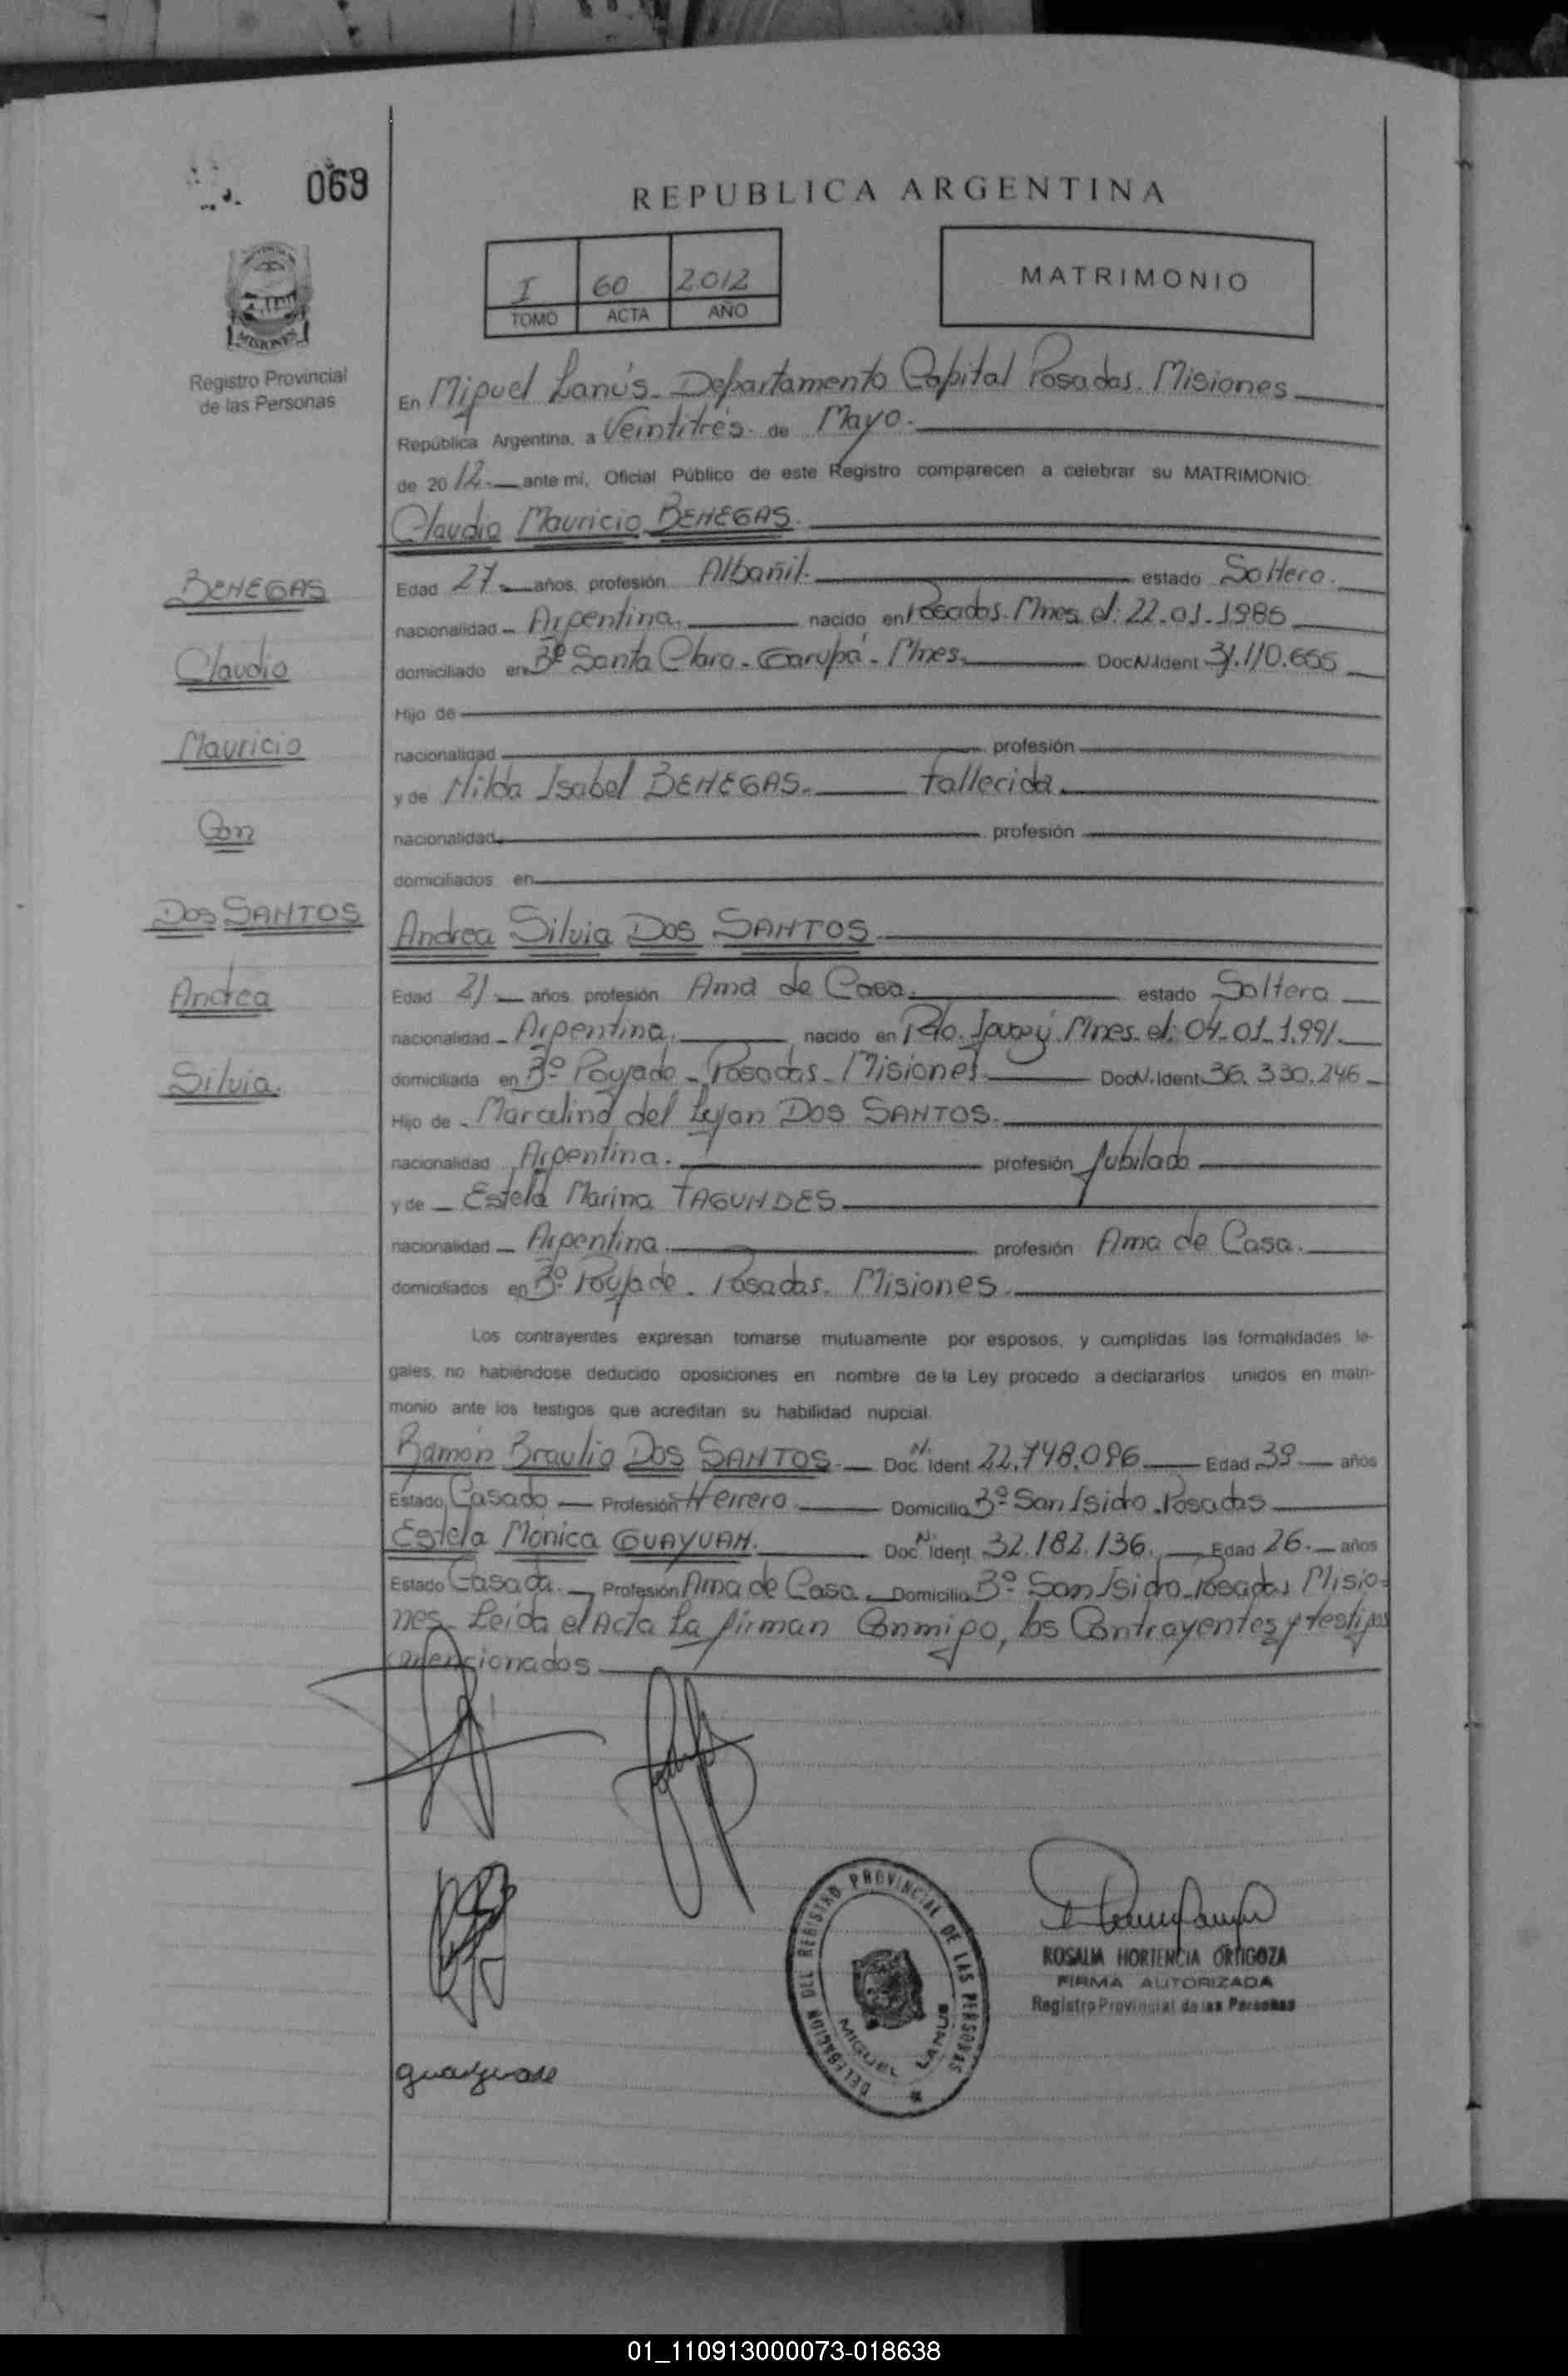 069
REPUBLICA ARGENTINA
I 60 2012
TOMO ACTA AÑO
MATRIMONIO
MISIONES
Registro Provincial
de las Personas
En Miguel Lanús. Departamento Capital Posadas. Misiones
República Argentina, a Veintitrés. de Mayo.
de 2012. ante mi, Oficial Público de este Registro comparecen a celebrar su MATRIMONIO:
Claudio Mauricio BENEGAS.
BENEGAS
Claudio
Mauricio
Con
DOS SANTOS
Andrea
Silvia.
Edad 27 años, profesión Albañil. estado Soltero.
nacionalidad Argentina. nacido en Posadas. Mnes. el: 22.01.1985
domiciliado en Bº Santa Clara - Garupá - Mnes. Doc N. Ident 31.110.655
Hijo de
nacionalidad profesión
y de Nilda Isabel BENEGAS. Fallecida.
nacionalidad profesión
domiciliados en
Andrea Silvia DOS SANTOS
Edad 21 años, profesión Ama de Casa. estado Soltera
nacionalidad Argentina. nacido en Pto. Mnes. el: 04.01.1.991.
domiciliada en Bº Poujade - Posadas - Misiones Doc N. Ident 36.330.246
Hijo de Marcelino del Lujan DOS SANTOS.
nacionalidad Argentina. profesión Jubilado
y de Estela Marina FAGUNDES
nacionalidad Argentina. profesión Ama de Casa.
domiciliados en Bº Poujade. Posadas. Misiones.
Los contrayentes expresan tomarse mutuamente por esposos, y cumplidas las formalidades le-
gales, no habiéndose deducido oposiciones en nombre de la Ley procedo a declararlos unidos en matri-
monio ante los testigos que acreditan su habilidad nupcial.
Ramón Braulio DOS SANTOS Doc N. Ident 22.748.096 Edad 39 años
Estado Casado Profesión Herrero Domicilio Bº San Isidro. Posadas
Estela Mónica GUAYUAN. Doc N. Ident 32.182.136. Edad 26. años
Estado Casada. Profesión Ama de Casa Domicilio Bº San Isidro. Posadas Misio-
nes. Leída el Acta La firman Conmigo, los Contrayentes y testigos
mencionados.
DELEGACION DEL REGISTRO PROVINCIAL DE LAS PERSONAS
MIGUEL LANUS
ROSALIA HORTENCIA ORTIGOZA
FIRMA AUTORIZADA
Registro Provincial de las Personas
01_110913000073-018638